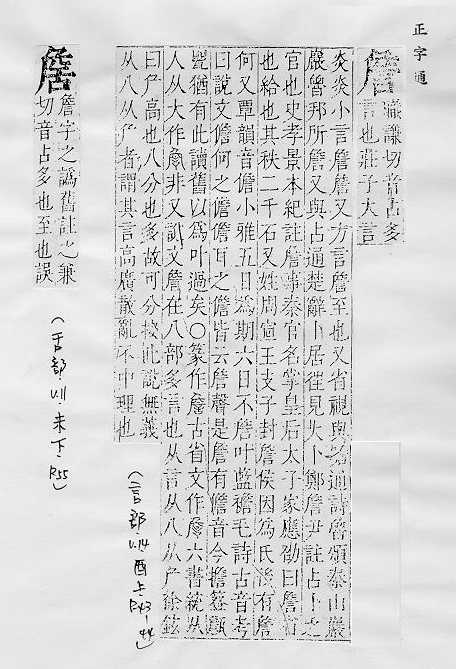 正字通
詹
之廉切音占多
言也莊子大言
炎炎小言詹詹又方言詹至也又省視與瞻通詩魯頌泰山巖
巖魯邦所詹又與占通楚辭卜居往見太卜鄭詹尹註占卜之
官也史孝景本紀註詹事秦官名掌皇后太子家應劭曰詹省
也給也其秩二千石又姓周宣王支子封詹侯因為氏後有詹
何又覃韻音儋小雅五日為期六日不詹叶藍襜毛詩古音考
曰說文儋何之儋儋耳之儋皆云詹聲是詹有儋音今擔簷甔
甖猶有此讀舊以為叶過矣〇篆作詹古省文作詹六書統从
人从大作𠆲非又說文詹在八部多言也从言从八从厃徐鉉
曰厃高也八分也多故可分按此說無義
从八从厃者謂其言高廣散亂不中理也
(言部.V.14酉上
P43-44)
詹
詹字之譌舊註之兼
切音占多也至也誤
(舌部.V.11.未下.
P.55)